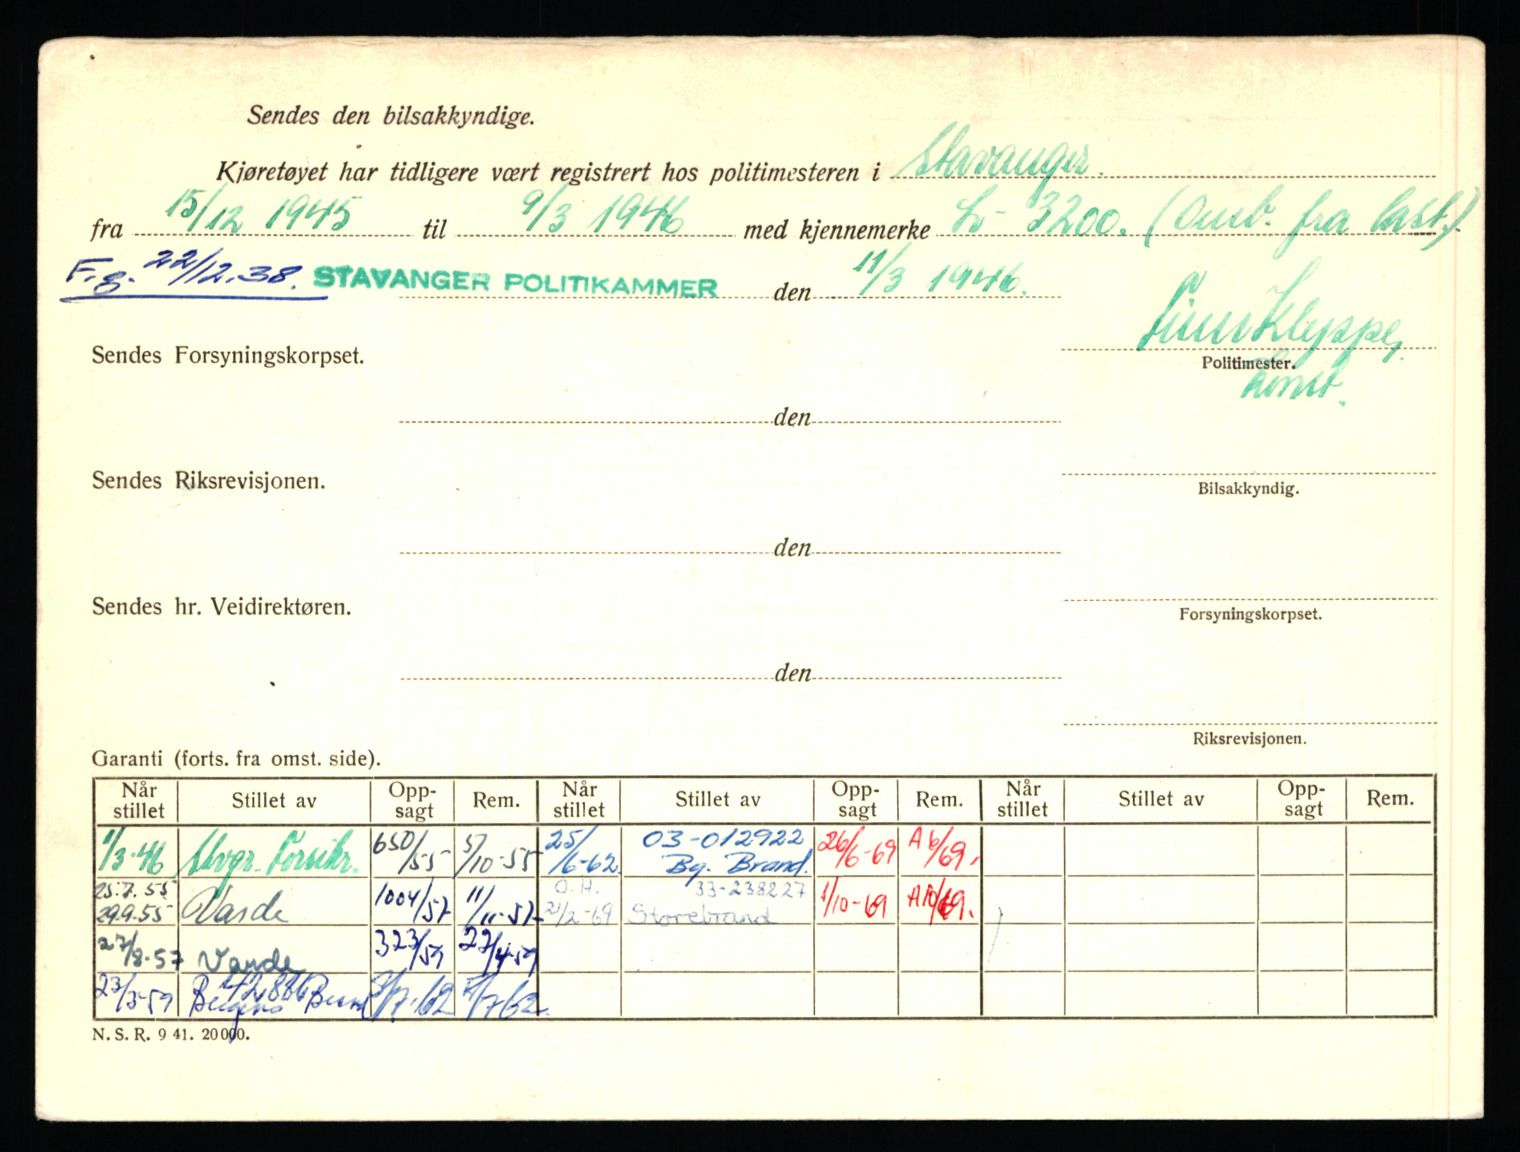 Sendes den bilsakkyndige.
Kjøretøyet har tidligere vært registrert hos politimesteren i Stavanger.
fra 15/12 1945 til 9/3 1946 med kjennemerke L- 3200. (Omb. fra last.).
F.g. 22/12.38. STAVANGER POLITIKAMMER den 11/3 1946.
Sendes Forsyningskorpset.
Politimester.
konst.
den
Sendes Riksrevisjonen.
Bilsakkyndig.
den
Sendes hr. Veidirektøren.
Forsyningskorpset.
den
Riksrevisjonen.
Garanti (forts. fra omst. side).
Når stillet Stillet av Opp- sagt Rem. Når stillet Stillet av Opp- sagt Rem. Når stillet Stillet av Opp- sagt Rem.
1/3-46 Stvgr. Forsikr. 650/55 5/10-55 25/6-62 03-012922 Bg. Brand. 26/6-69 A6/69.
25.7.55 29.9.55 Varde 1004/57 11/11-57 O.H. 21/2-69 33-238227 Storebrand 1/10-69 A10/69.
27/8-57 Varde 323/59 22/4-59
23/3-59 42886 Bergens Brand /7.62 /7 62.
N. S. R. 9 41. 20 000.